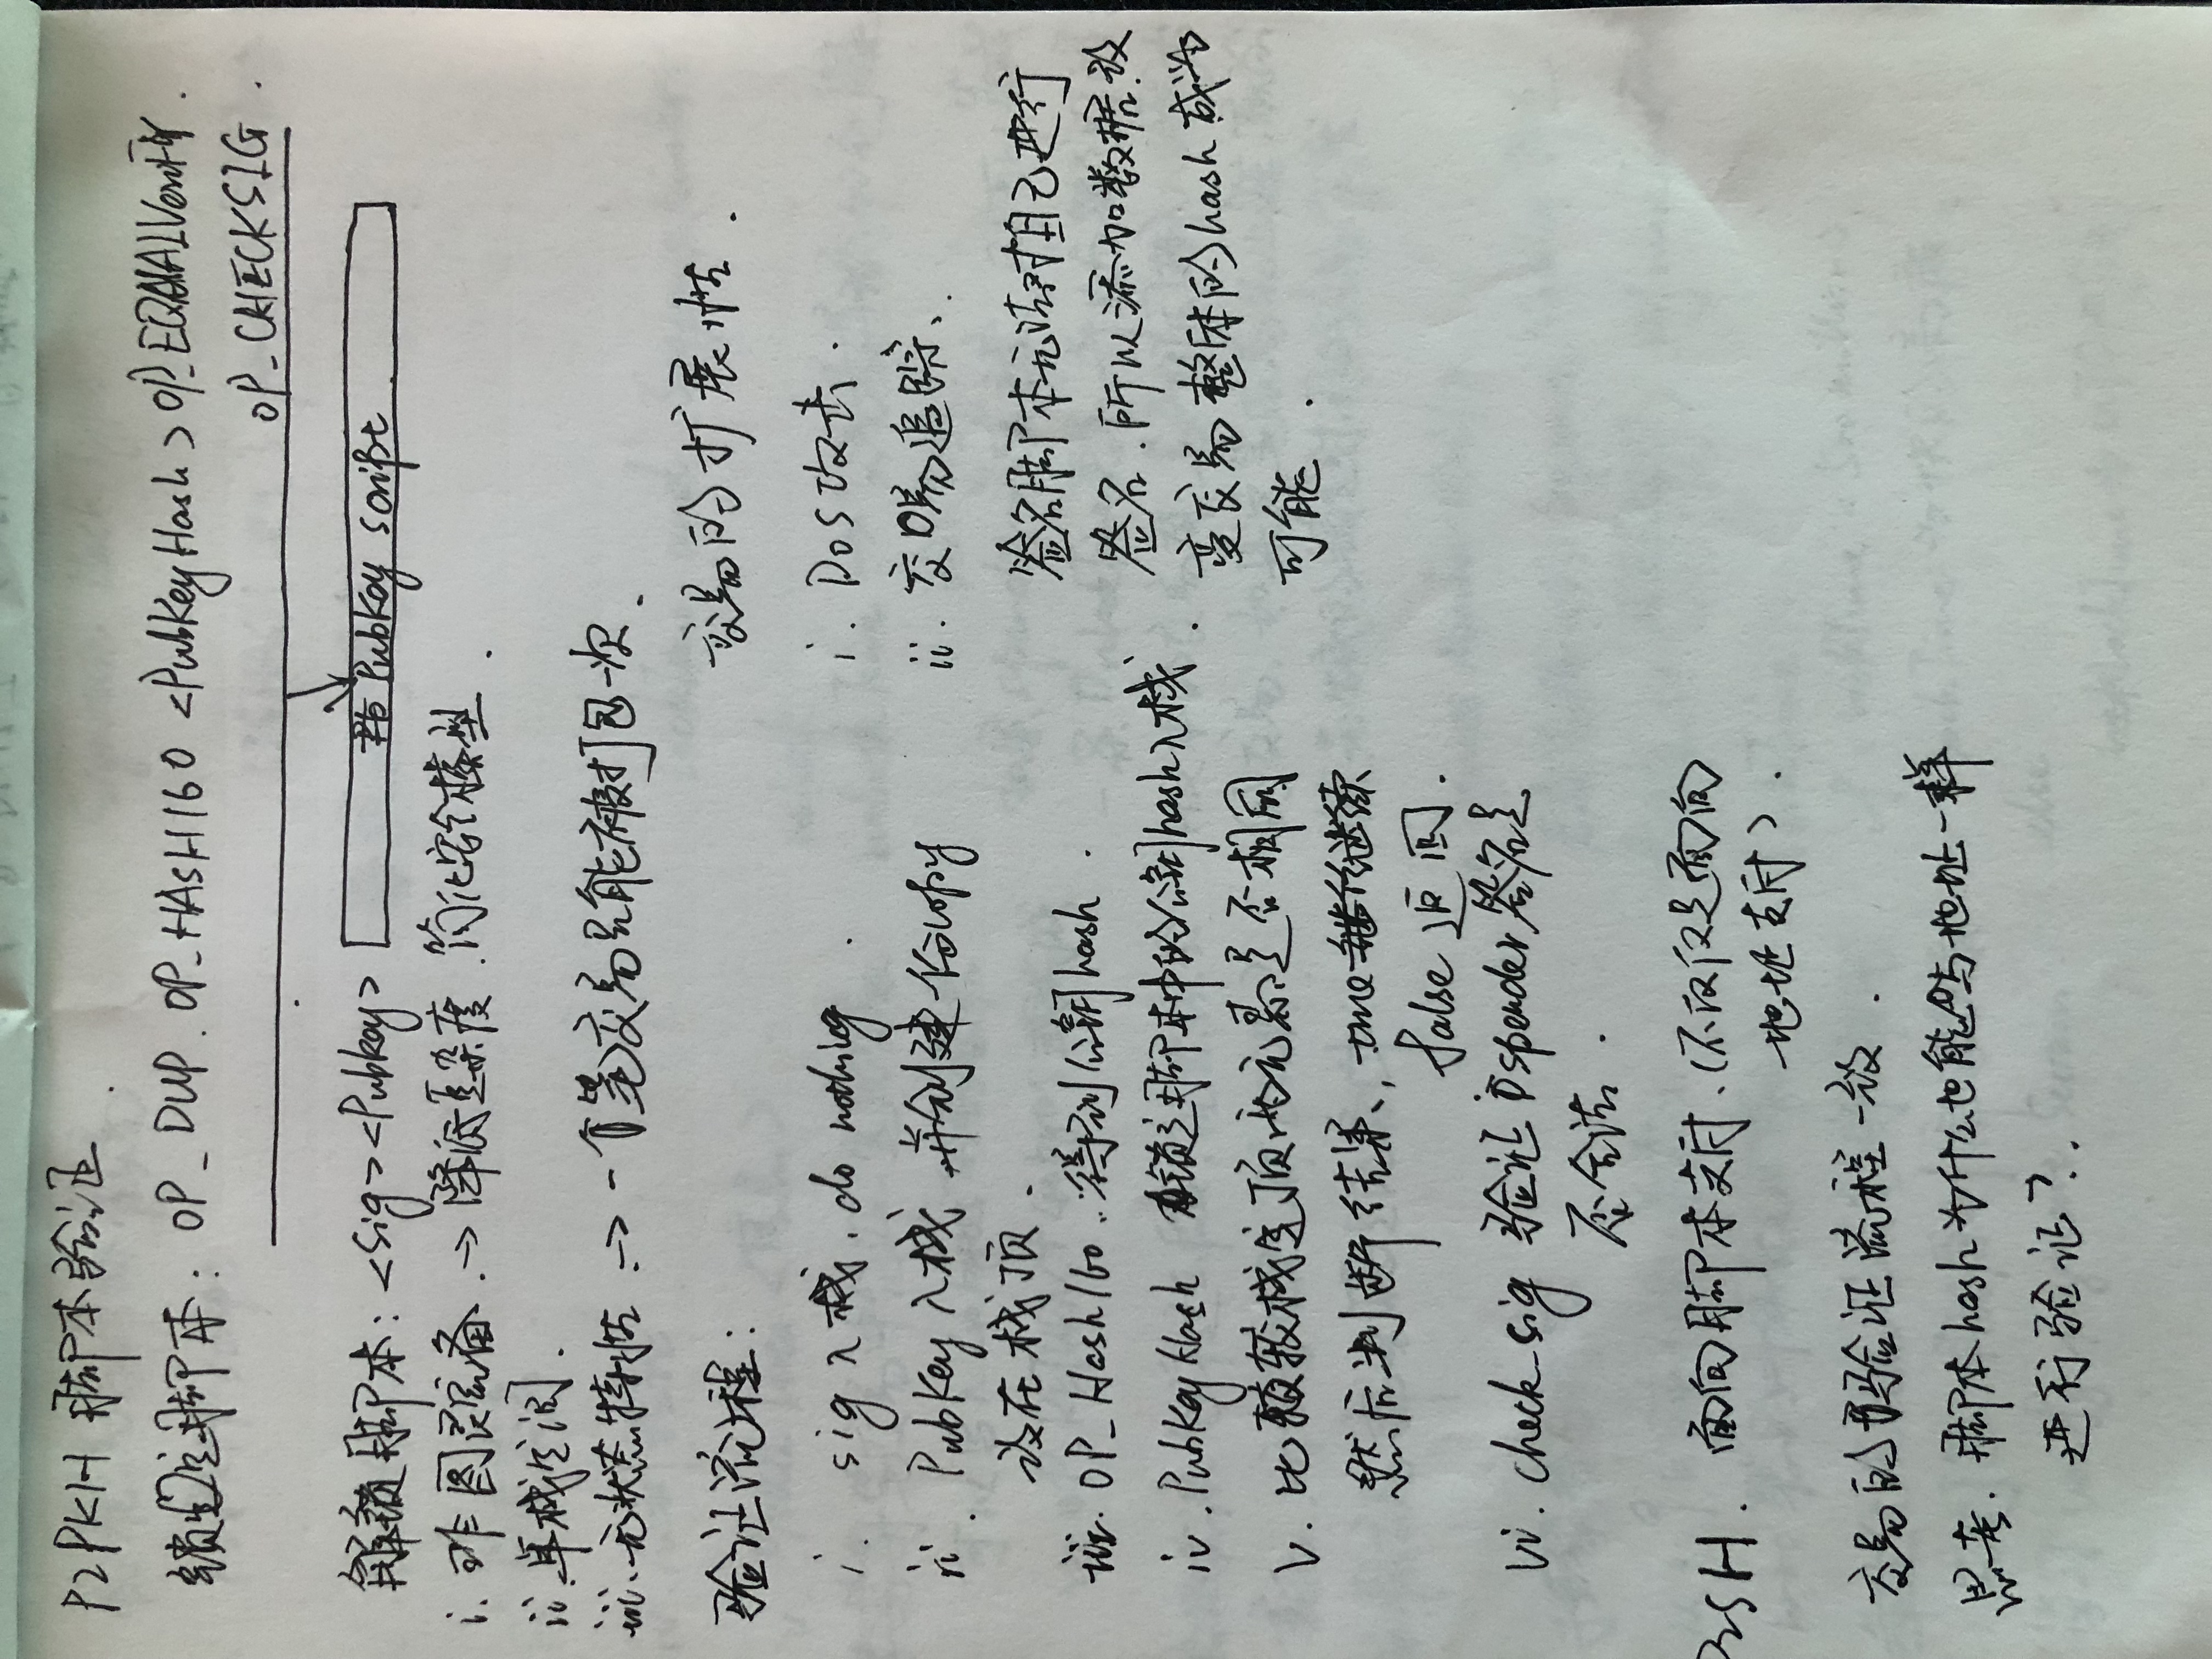 P2PKH 脚本验证.
锁定脚本: OP_DUP. OP_HASH160 <PubKeyHash> OP_EQUALVerify.
OP_CHECKSIG.
解锁脚本: <Sig><Pubkey> PubKey script
i. 非图灵完备. → 降低复杂度. 简化安全模型.
ii. 单栈空间.
iii. 无状态特性 → 一笔交易只能被打包一次.
验证流程:
i. sig入栈. do nothing.
ii. PubKey入栈 并创建一份copy
设在栈顶.
iii. OP_Hash160.. 得到公钥hash.
iv. PubKeyHash 锁定脚本中的公钥hash入栈.
v. 比较栈顶两元素是否相同
然后判断结果, true 继续
false 返回.
vi. check_sig 验证spender签名是
否合法.
交易的扩展性.
i. DoS攻击.
ii. 交易追踪.
签名脚本无法对自己进行
签名. 所以添加数据改
变交易整体的hash成为
可能.
2SH. 面向脚本支付. (不仅仅是面向
地址支付).
交易的验证流程一致.
思考. 脚本hash为什么也能与地址一样
进行验证?.